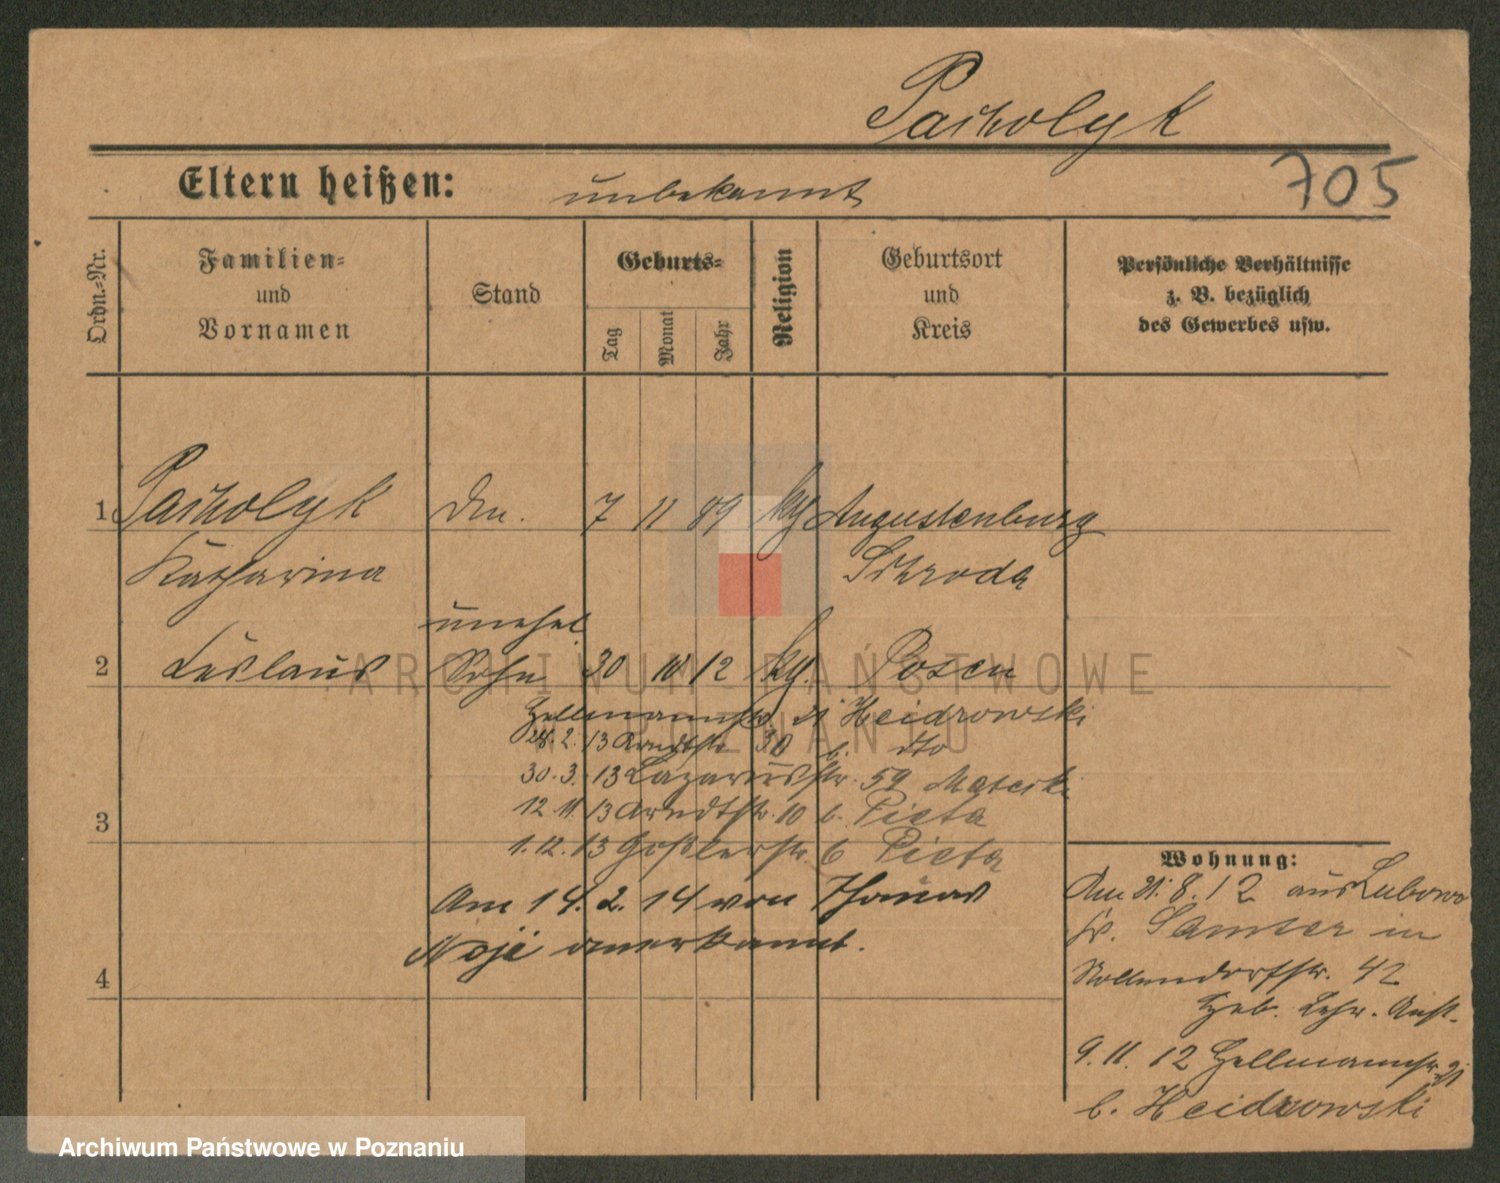 Pacholyk
705
Eltern heißen: unbekannt
Ordn.-Nr.
Familien-
und
Vornamen
Stand
Geburts-
Tag
Monat
Jahr
Religion
Geburtsort
und
Kreis
Persönliche Verhältnisse
z. B. bezüglich
des Gewerbes usw.
1 Pacholyk 7 11 89 Augustenburg
Katharina Schroda
unehel.
2 Sohn 30 10 12 Posen
Hellmannstr. 21 Heidrowski
28.2.13 Arndtstr. 30 b. dto
30.3.13 Lazarusstr. 59
12.11.13 Arndtstr. 10 b. Pieta
3
1.12.13 Goßlerstr. 6 Pieta
Am 14.2.14 von Thomas
anerkannt.
4
Wohnung:
Am 21.8.12 aus Lubowo
Kr. Samter in
Nollendorfstr. 42
Heb. Lehr. Anst.
9.11.12 Hellmannstr. 21
b. Heidrowski
ARCHIWUM PAŃSTWOWE
W POZNANIU
Archiwum Państwowe w Poznaniu